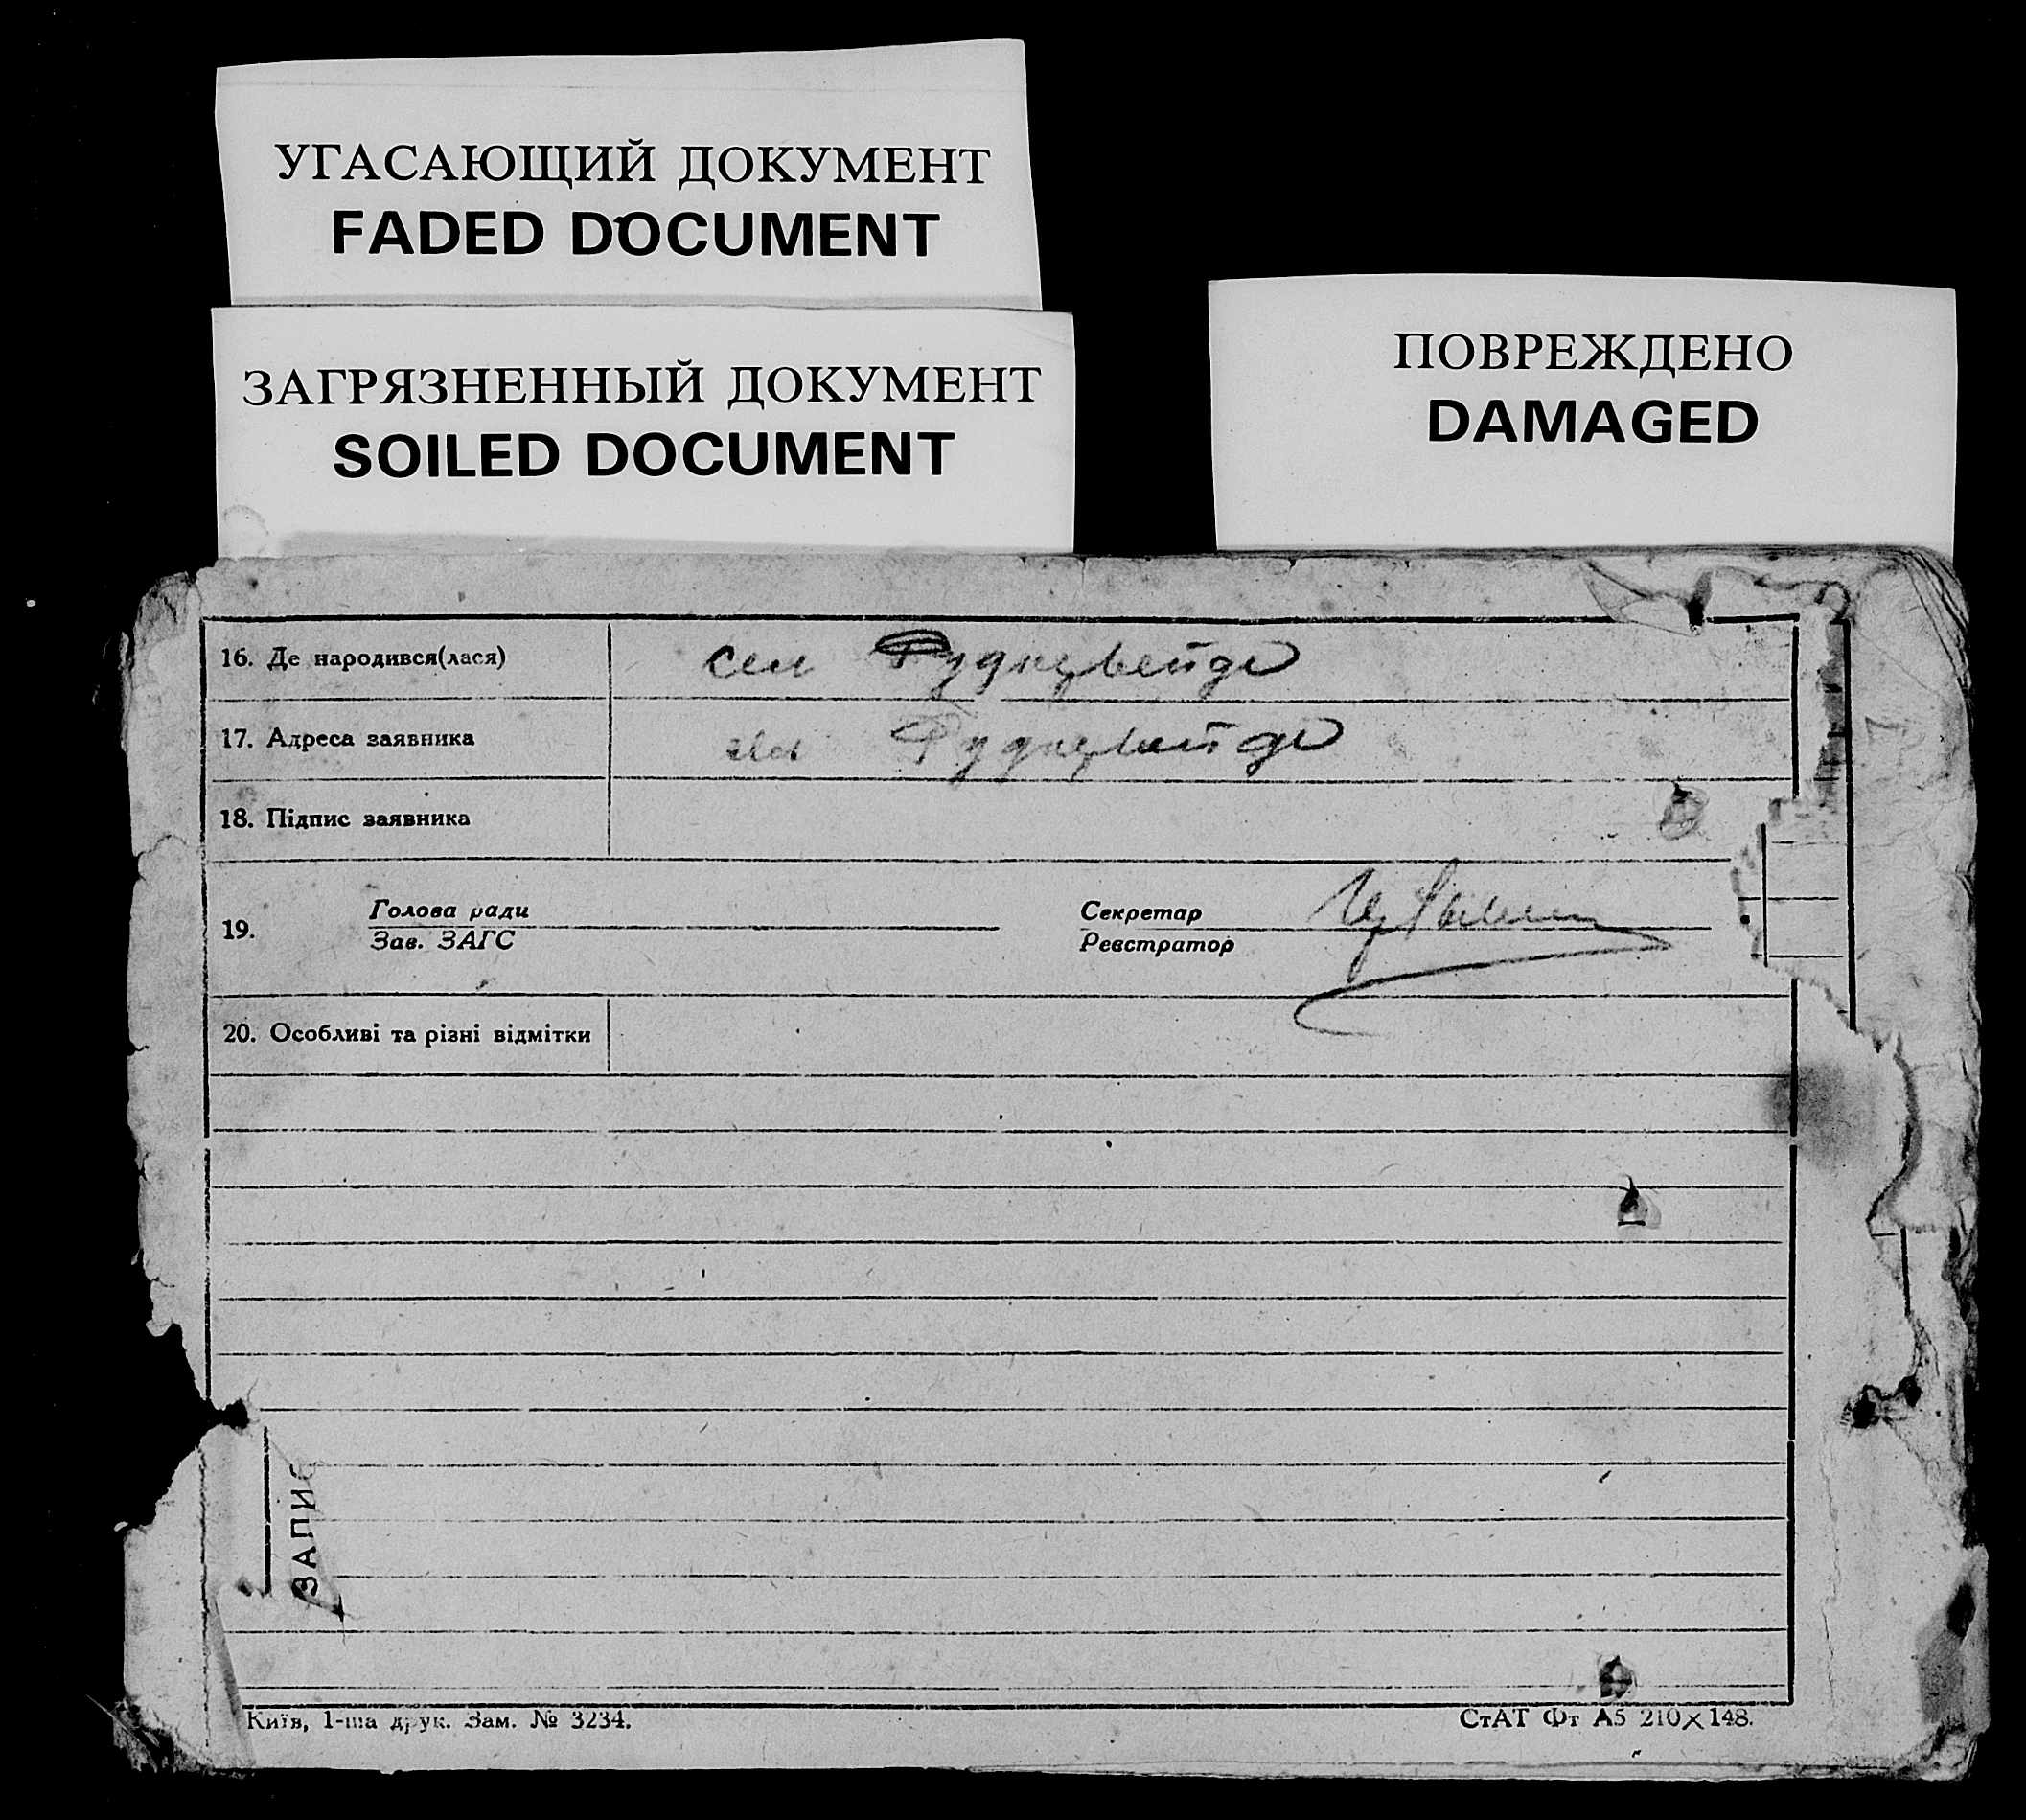 УГАСАЮЩИЙ ДОКУМЕНТ
FADED DOCUMENT
ЗАГРЯЗНЕННЫЙ ДОКУМЕНТ
SOILED DOCUMENT
ПОВРЕЖДЕНО
DAMAGED
16. Де народився(лася) сел
17. Адреса заявника
18. Підпис заявника
19. Голова ради
Зав. ЗАГС
Секретар
Реєстратор
20. Особливі та різні відмітки
ЗАПИС
Київ, 1-ша друк. Зам. № 3234.
СтАТ Фт А5 210×148.